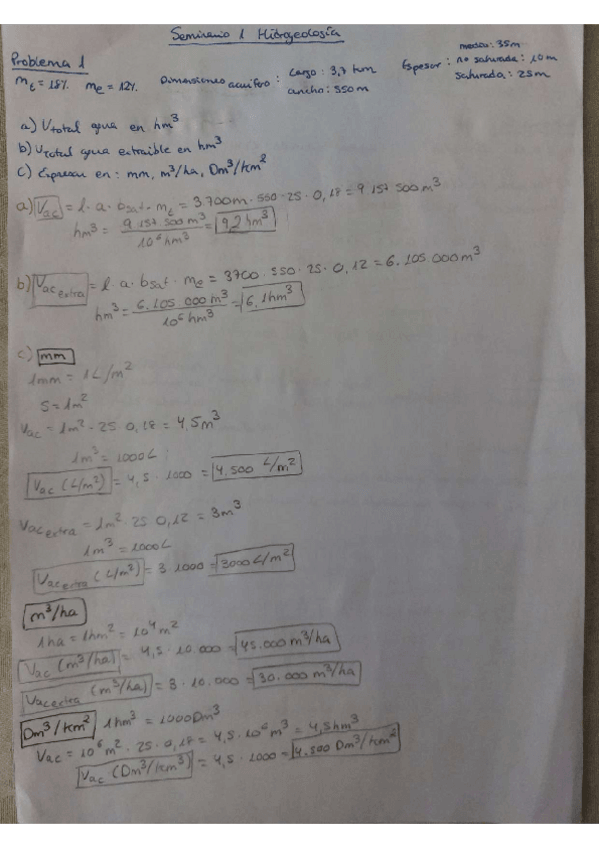 Seminario 1 Hidrogeología
Problema 1
mt = 18% me = 12% Dimensiones acuífero: largo: 3,7 km ancho: 550 m Espesor: medio: 35m no saturada: 10m saturada: 25m
a) Vtotal agua en hm³
b) Vtotal agua extraible en hm³
c) Expresar en: mm, m³/ha, Dm³/km²
a) Vac = l · a · bsat · mt = 3.700m · 550 · 25 · 0,18 = 9 157 500 m³
hm³ = 9.157.500 m³ / 10⁶ hm³ = 9,2 hm³
b) Vac extra = l · a · bsat · me = 3700 · 550 · 25 · 0,12 = 6.105.000 m³
hm³ = 6.105.000 m³ / 10⁶ hm³ = 6,1 hm³
c) mm
1mm = 1L/m²
S = 1m²
Vac = 1m² · 25 · 0,18 = 4,5 m³
1m³ = 1000L
Vac (L/m²) = 4,5 · 1000 = 4.500 L/m²
Vac extra = 1m² · 25 · 0,12 = 3m³
1m³ = 1000L
Vac extra (L/m³) = 3 · 1000 = 3000 L/m²
m³/ha
1ha = 1hm² = 10⁴ m²
Vac (m³/ha) = 4,5 · 10.000 = 45.000 m³/ha
Vac extra (m³/ha) = 3 · 10.000 = 30.000 m³/ha
Dm³/km² 1hm³ = 1000Dm³
Vac = 10⁶ m² · 25 · 0,18 = 4,5 · 10⁶ m³ = 4,5hm³
Vac (Dm³/km³) = 4,5 · 1000 = 4.500 Dm³/km²